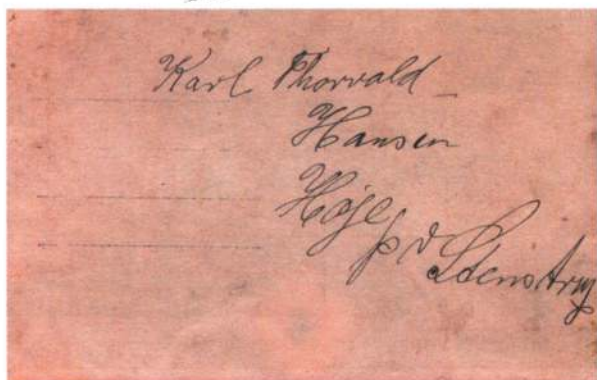 Karl Thorvald
Hansen
Høje
pr Stenstrup